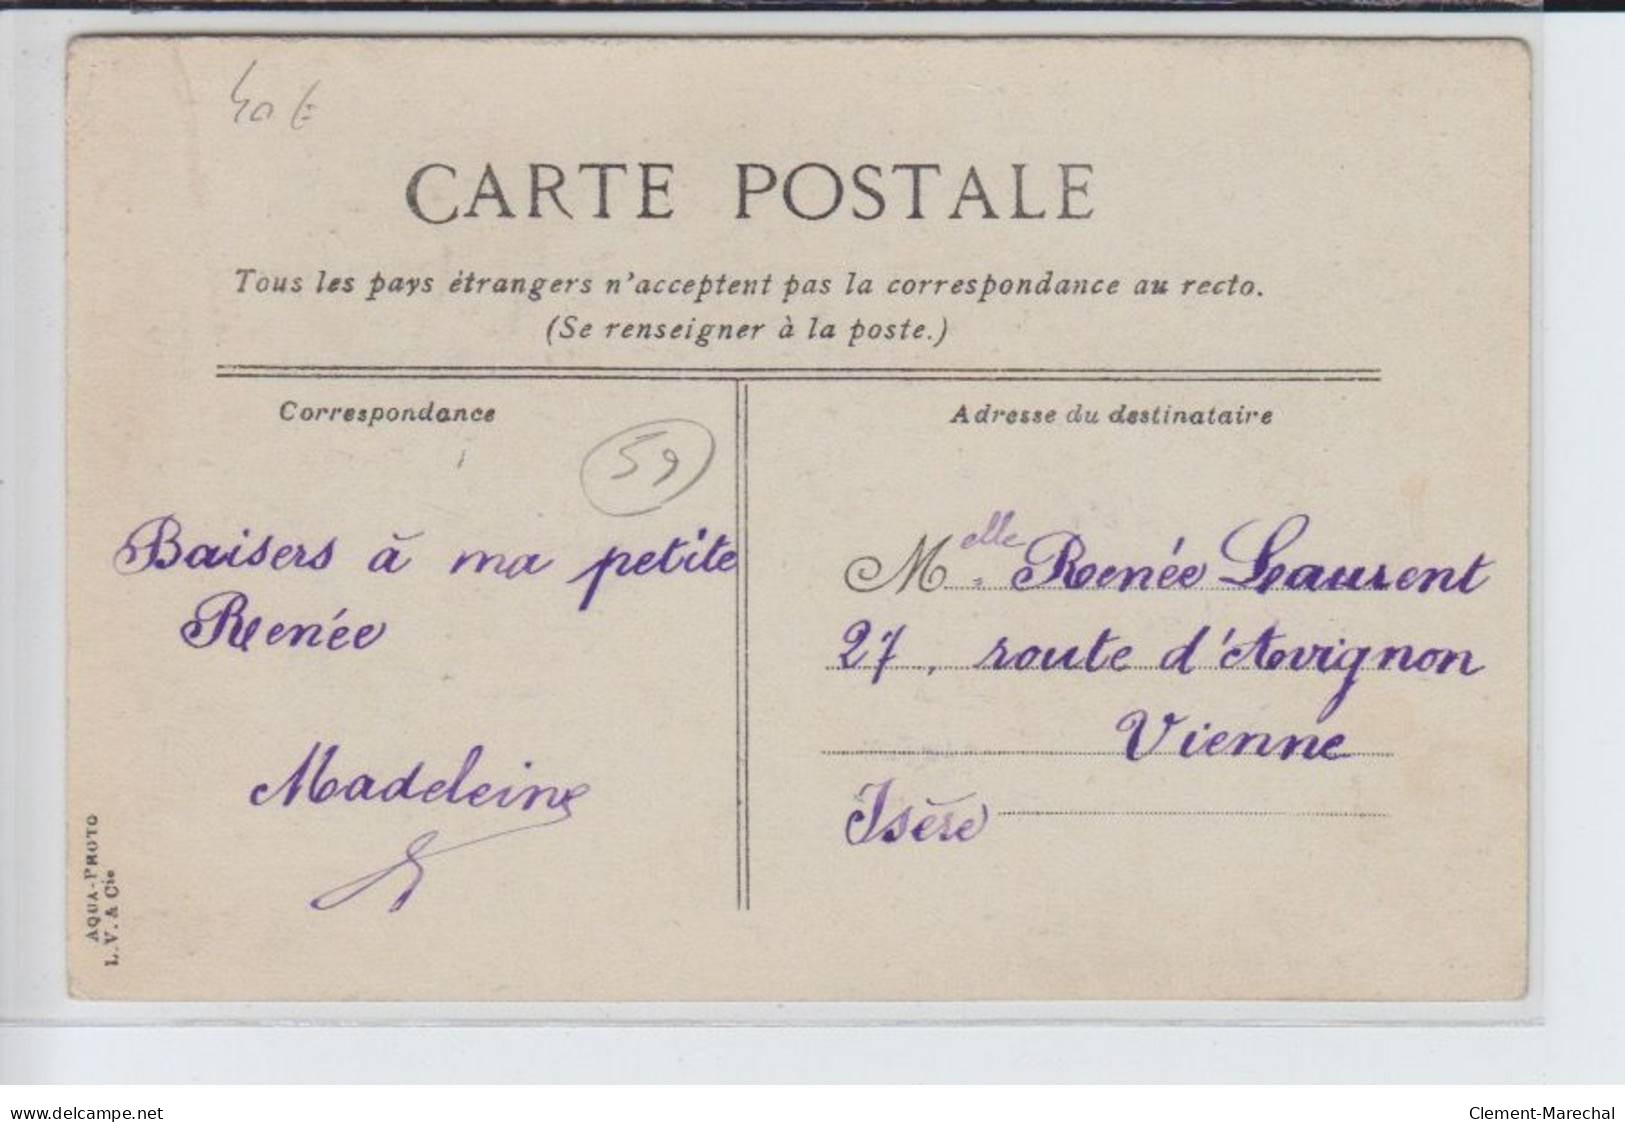 40 €
CARTE POSTALE
Tous les pays étrangers n'acceptent pas la correspondance au recto.
(Se renseigner à la poste.)
Correspondance
59
Baisers à ma petite
Renée
Madeleine
Adresse du destinataire
Melle Renée Laurent
27, route d'Avignon
Vienne
Isère
AQUA-PHOTO
L. V. & Cie
www.delcampe.net
Clement-Marechal